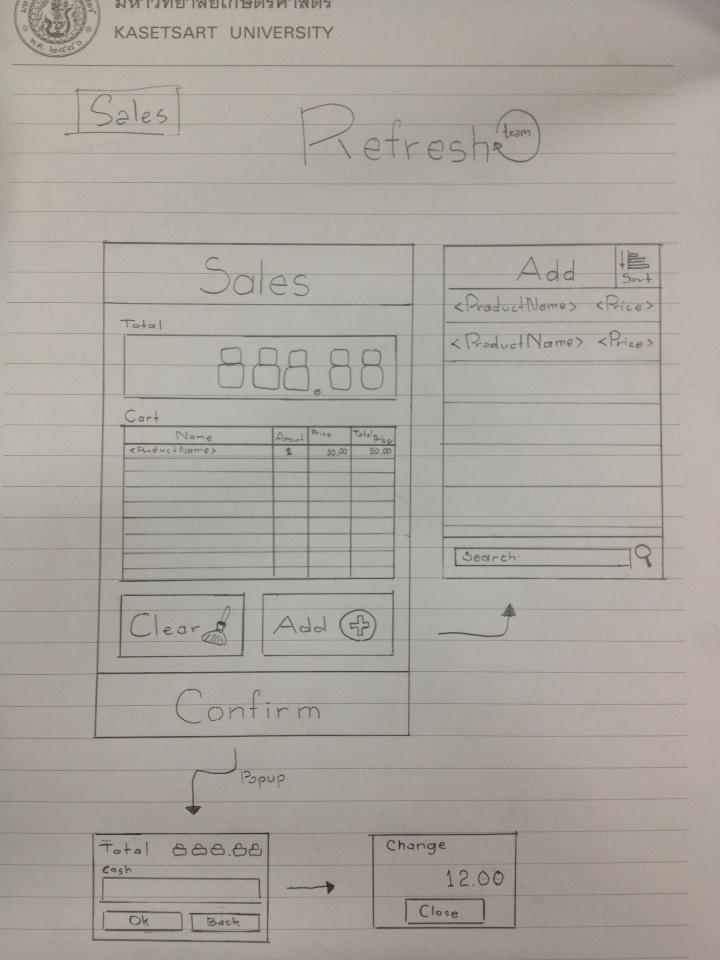 มหาวิทยาลัยเกษตรศาสตร์
KASETSART UNIVERSITY
Sales
Refresh team
Sales
Total
888.88
Cart
Name Amount Price Total Price
<ProductName> 2 10.00 20.00
Clear Add
Confirm
Add Sort
<ProductName> <Price>
<ProductName> <Price>
Search
Popup
Total 888.88
Cash
Ok Back
Change
12.00
Close